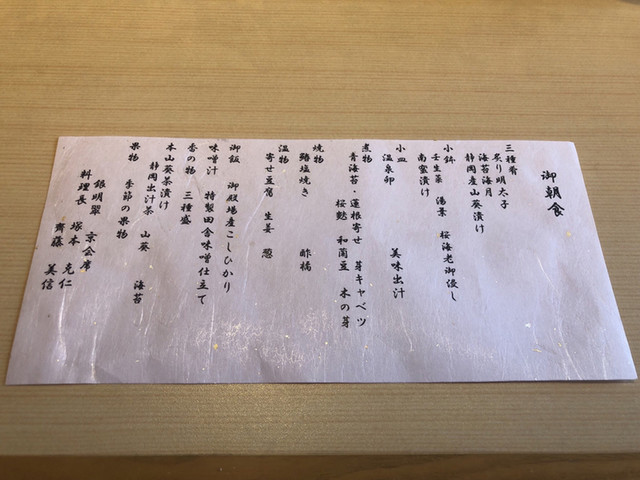 御朝食
三種肴
炙り明太子
海苔海月
静岡産山葵漬け
小鉢
壬生菜 湯葉 桜海老御浸し
南蛮漬け
小皿
温泉卵 美味出汁
煮物
青海苔・蓮根寄せ 芽キャベツ
桜麩 和蘭豆 木の芽
焼物
鰆塩焼き 酢橘
温物
寄せ豆腐 生姜 葱
御飯 御殿場産こしひかり
味噌汁 特製田舎味噌仕立て
香の物 三種盛
本山葵茶漬け
静岡出汁茶 山葵 海苔
果物 季節の果物
銀明翠 京会席
料理長 塚本 克仁
齊藤 美信